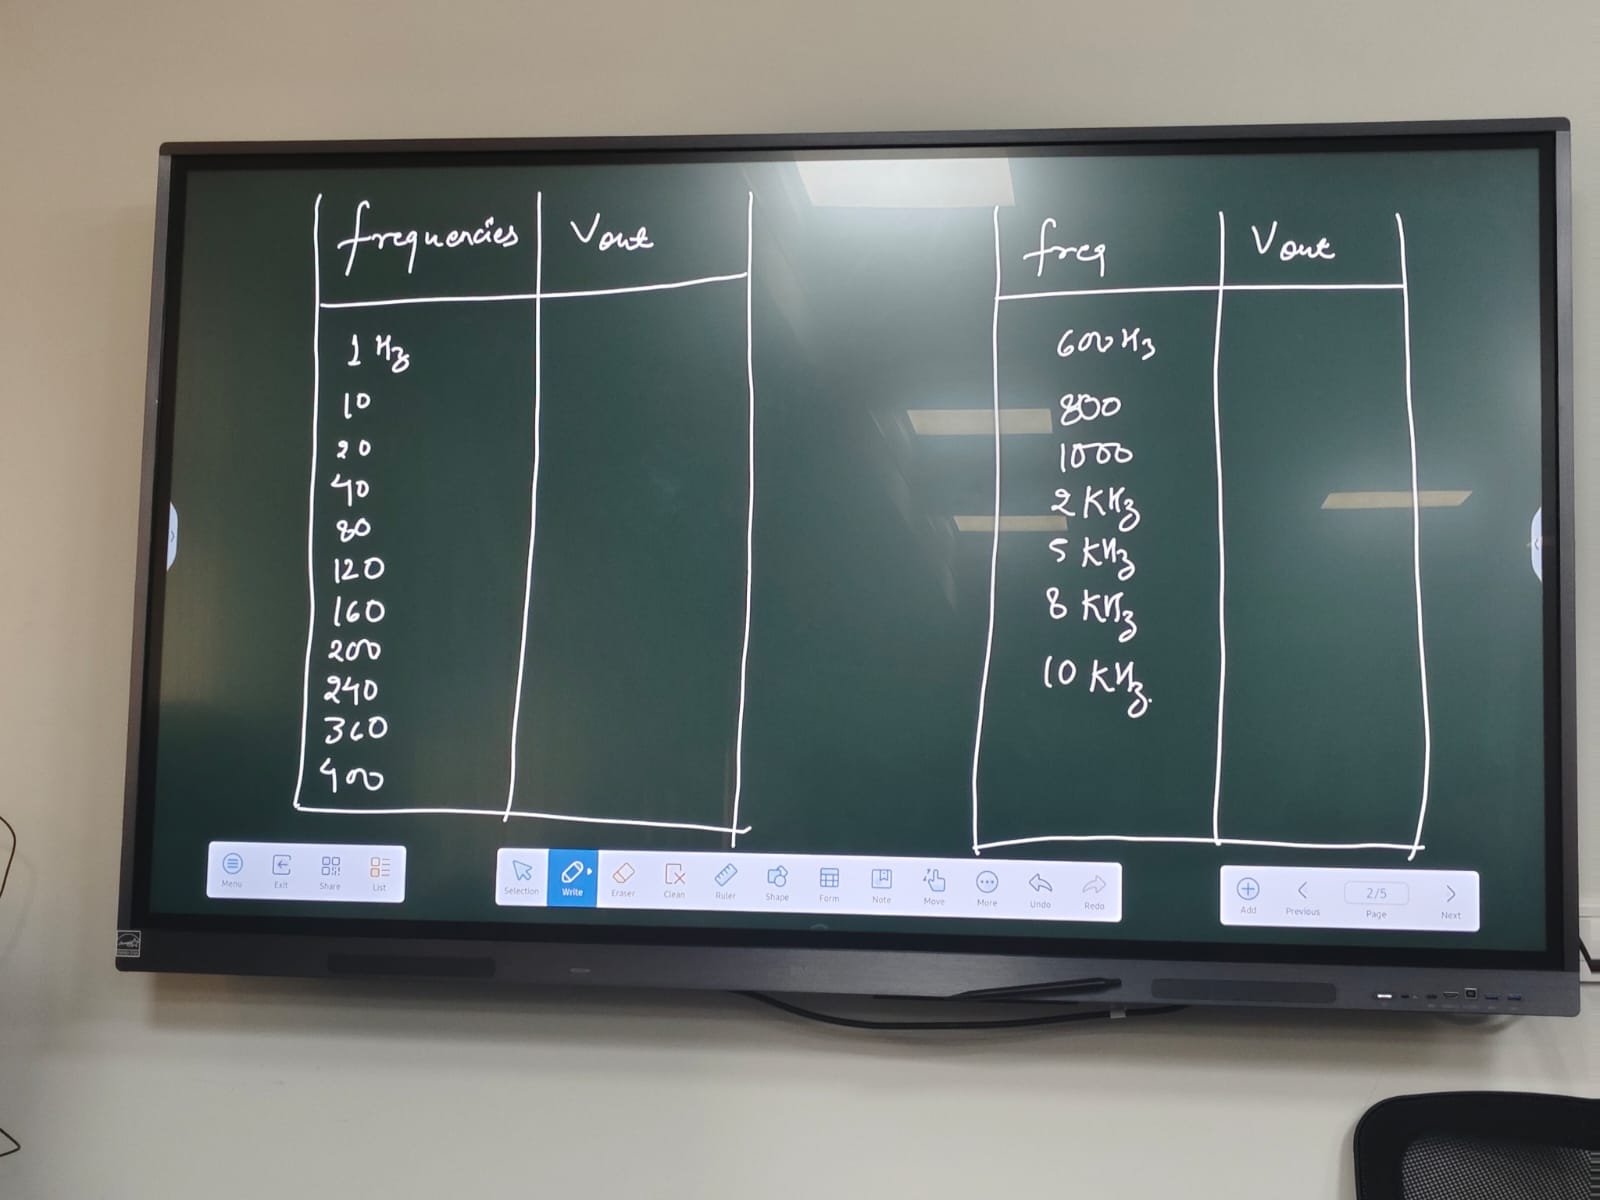 frequencies Vout
1 Hz
10
20
40
80
120
160
200
240
360
400
freq Vout
600 Hz
800
1000
2 KHz
5 KHz
8 KHz
10 KHz.
Menu Exit Share List
Selection Write Eraser Clean Ruler Shape Form Note Move More Undo Redo
Add Previous 2/5 Page Next